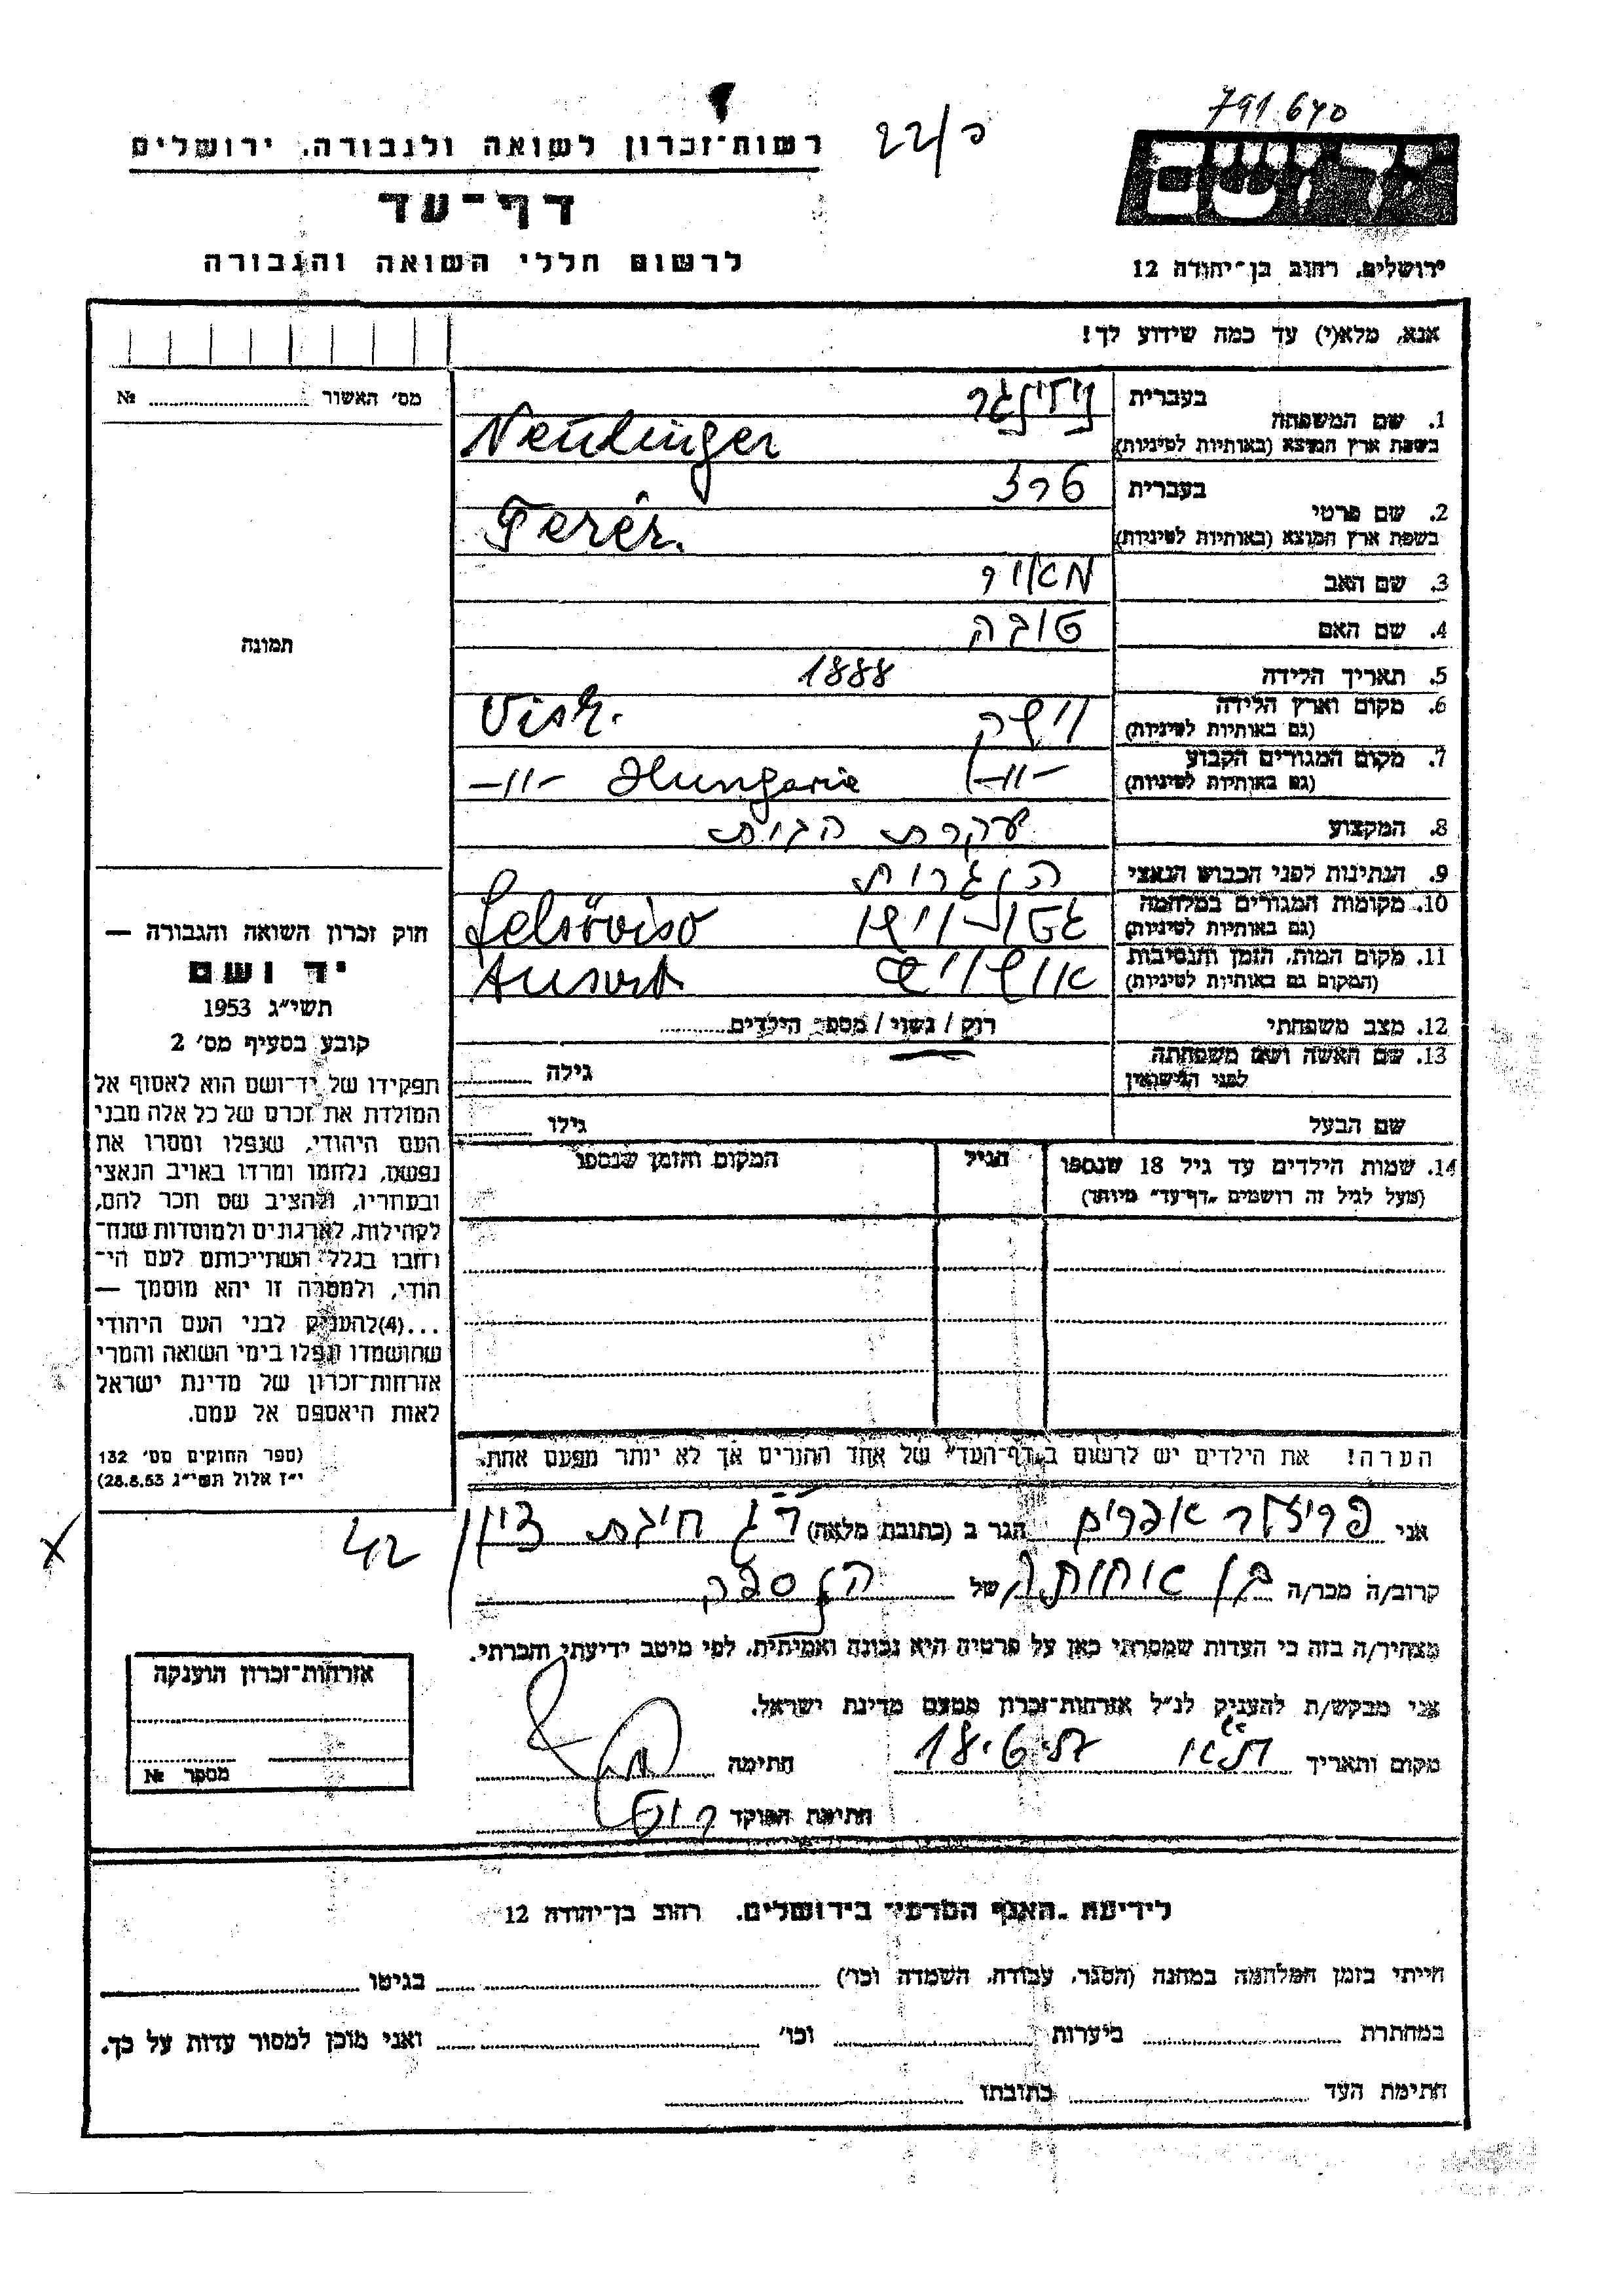 791640
22/פ
רשות-זכרון לשואה ולגבורה, ירושלים
דף-עד
לרשום חללי השואה והגבורה
יד ושם
ירושלים, רחוב בן-יהודה 12
אנא, מלא(י) עד כמה שידוע לך!
מס׳ האשור № 
1. שם המשפחה
בעברית
נוידינגר
בשפת ארץ המוצא (באותיות לטיניות)
Neudinger
2. שם פרטי
בעברית
טרז
בשפת ארץ המוצא (באותיות לטיניות)
Teréz.
3. שם האב מאיר
4. שם האם טובה
5. תאריך הלידה 1888
6. מקום וארץ הלידה (גם באותיות לטיניות) וישק Visk.
7. מקום המגורים הקבוע (גם באותיות לטיניות) -״- -״- Hungaria
8. המקצוע עקרת הבית
9. הנתינות לפני הכבוש הנאצי הונגרית
10. מקומות המגורים במלחמה (גם באותיות לטיניות) Felsöviso
11. מקום המות, הזמן והנסיבות (המקום גם באותיות לטיניות) אושויץ
12. מצב משפחתי רווק / נשוי / מספר הילדים
13. שם האשה ושם משפחתה לפני הנישואין גילה
שם הבעל גילו
14. שמות הילדים עד גיל 18 שנספו (מעל לגיל זה רושמים „דף-עד״ מיוחד)
הגיל
המקום והזמן שנספו
הערה! את הילדים יש לרשום ב„דף-העד״ של אחד ההורים אך לא יותר מפעם אחת.
תמונה
חוק זכרון השואה והגבורה —
יד ושם
תשי״ג 1953
קובע בסעיף מס׳ 2
תפקידו של יד-ושם הוא לאסוף אל
המולדת את זכרם של כל אלה מבני
העם היהודי, שנפלו ומסרו את
נפשם, נלחמו ומרדו באויב הנאצי
ובעוזריו, ולהציב שם וזכר להם,
לקהילות, לארגונים ולמוסדות שנח-
רבו בגלל השתייכותם לעם הי-
הודי, ולמטרה זו יהא מוסמך —
...(4) להעניק לבני העם היהודי
שהושמדו ונפלו בימי השואה והמרי
אזרחות-זכרון של מדינת ישראל
לאות היאספם אל עמם.
(ספר החוקים מס׳ 132
י״ז אלול תשי״ג 28.8.53)
אני אפרים הגר ב (כתובת מלאה) ר״ג חיבת ציון 42
קרוב/ה מכר/ה בן אחותה של הנספה
מצהיר/ה בזה כי העדות שמסרתי כאן על פרטיה היא נכונה ואמיתית, לפי מיטב ידיעתי והכרתי.
אני מבקש/ת להעניק לנ״ל אזרחות-זכרון מטעם מדינת ישראל.
מקום ותאריך חתימה
חתימת הפוקד
אזרחות-זכרון הוענקה
מספר №
לידיעת „האגף המדעי״ בירושלים, רחוב בן-יהודה 12
הייתי בזמן המלחמה במחנה (הסגר, עבודה, השמדה וכו׳) בגיטו
במחתרת ביערות וכו׳ ואני מוכן למסור עדות על כך.
חתימת העד כתובתו